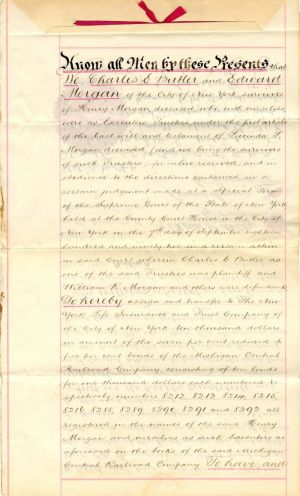 Know all Men by these Presents that
We, Charles E Butler and Edward
Morgan of the City of New York survivors
of Henry Morgan deceased who with ourselves
were as Executors Trustees under the first article
of the last will and testament of Lucinda L.
Morgan deceased (and we being the survivors
of such Trustees) for value received, and in
obedience to the directions contained in a
certain judgment made at a Special Term
of the Supreme Court of the State of New York
held at the County Court House in the City of
New York on the 7th day of September eighteen
hundred and ninety two in a certain action
in said Court wherein Charles E Butler as
one of the said Trustees was plaintiff and
William R. Morgan and others were defendants
Do hereby assign and transfer to The New
York Life Insurance and Trust Company of
the City of New York ten thousand dollars
in amount of the seven per cent reduced to
five per cent bonds of the Michigan Central
Railroad Company, consisting of ten bonds
for one thousand dollars each numbered re-
spectively numbers 8212, 8213, 8214, 8215,
8216, 8288, 8289, 8290, 8291 and 8292 all
registered in the names of the said Henry
Morgan and ourselves as such Executors as
aforesaid on the books of the said Michigan
Central Railroad Company To have and